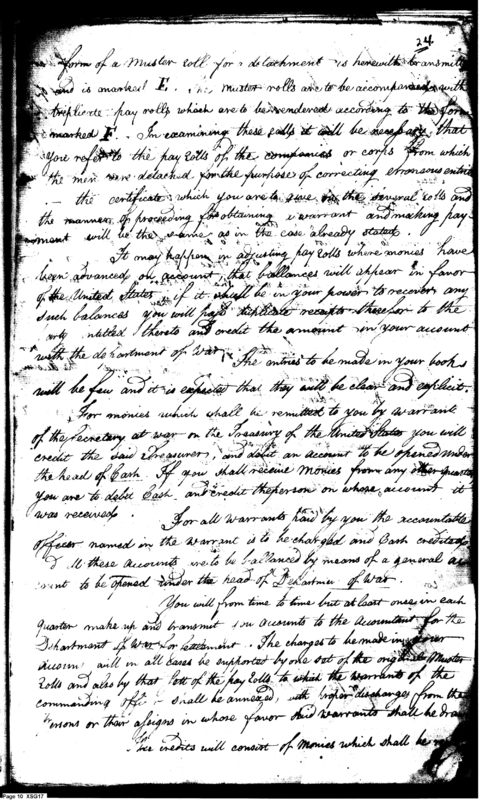 24
form of a Muster roll for a detachment is herewith transmitted
and is marked E. The muster rolls are to be accompanied with
triplicate pay rolls which are to be rendered according to the form
marked F. In examining these rolls it will be necessary that
you refer to the pay rolls of the companies or corps from which
the men were detached for the purpose of correcting erroneous entries
— the certificate which you are to give on the several rolls and
the manner of proceeding for obtaining a warrant and making pay-
ment will be the same as in the case already stated.
It may happen in adjusting pay rolls where monies have
been advanced on account, that ballances will appear in favor
of the United States if it shall be in your power to recover any
such balances you will pass duplicate receipts therefor to the
entitled thereto and credit the amount in your account
with the department of War. The entries to be made in your books
will be few and it is expected that they will be clear and explicit.
For monies which shall be remitted to you by warrant
of the Secretary at war on the Treasury of the United States you will
credit the said Treasurer, and debit an account to be opened under
the head of Cash If you shall receive monies from any other quarter
you are to debit Cash, and credit the person on whose account it
was received.
For all warrants paid by you the accountable
officer named in the warrant is to be charged and Cash credited
All these Accounts are to be ballanced by means of a general ac
count to be opened under the head of Department of War.
You will from time to time but at least once in each
quarter make up and transmit your accounts to the Accountant for the
Department of War for settlement. The charges to be made in
account will in all cases be supported by one set of the original Muster
rolls and also by that sett of the pay rolls to which the warrants of the
commanding officer shall be annexed with proper discharges from the
persons or their assigns in whose favor said warrants shall be drawn
The credits will consist of monies which shall be
Page 10 XSG17